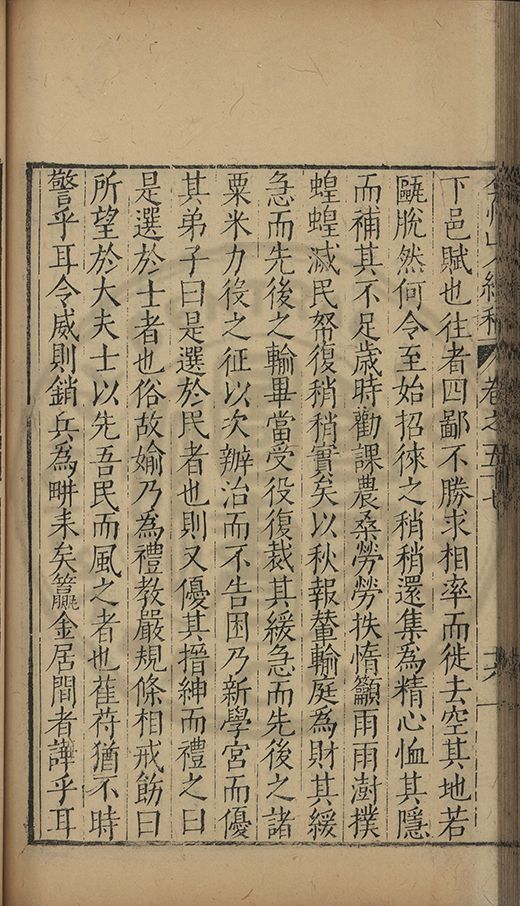 卷之五十七
下邑賦也往者四鄙不勝求相率而徙去空其地若
甌脫然何令至始招徠之稍稍還集為精心恤其隱
而補其不足歲時勸課農桑勞勞抶惰籲雨雨澍撲
蝗蝗滅民帑復稍稍實矣以秋報輦輸庭為財其緩
急而先後之輸畢當受役復裁其緩急而先後之諸
粟米力役之征以次辦治而不告困乃新學宮而優
其弟子曰是選於民者也則又優其搢紳而禮之曰
是選於士者也俗故媮乃為禮教嚴規條相戒飭曰
所望於大夫士以先吾民而風之者也萑苻猶不時
警乎耳令威則銷兵為畊耒矣籯金居間者譁乎耳